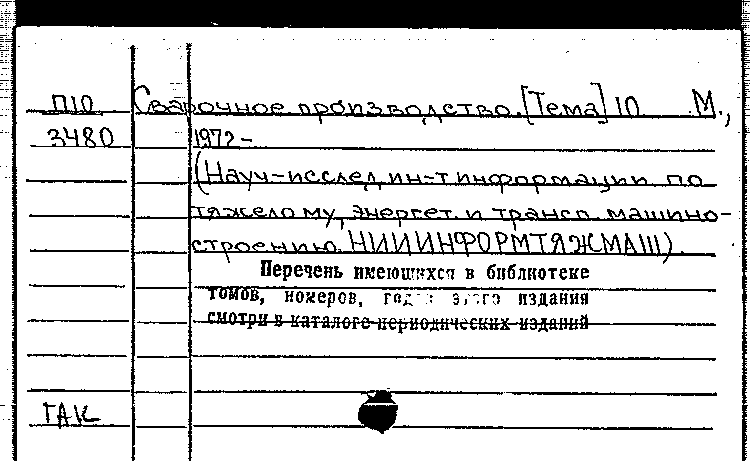 П10 Сварочное производство. [Тема] 10 М.,
3480 1972 –
(Науч-исслед. ин-т информации по
тяжелому, энергет. и трансп. машино-
строению. НИИИНФОРМТЯЖМАШ).
Перечень имеющихся в библиотеке
томов, номеров, годов этого издания
смотри в каталоге периодических изданий
ГАК